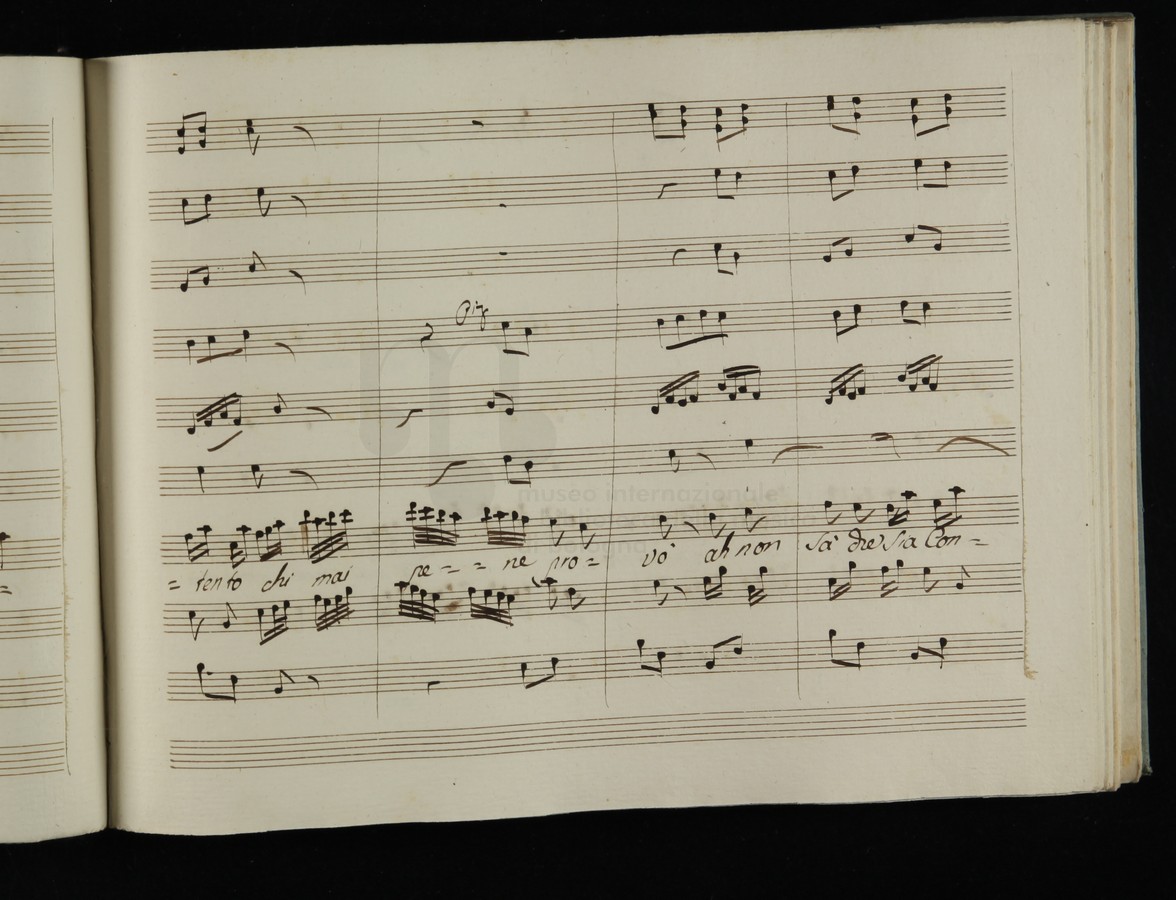 Piz
= tento chi mai pe - - ne pro = vò ah non sà che sia Con =
museo internazionale